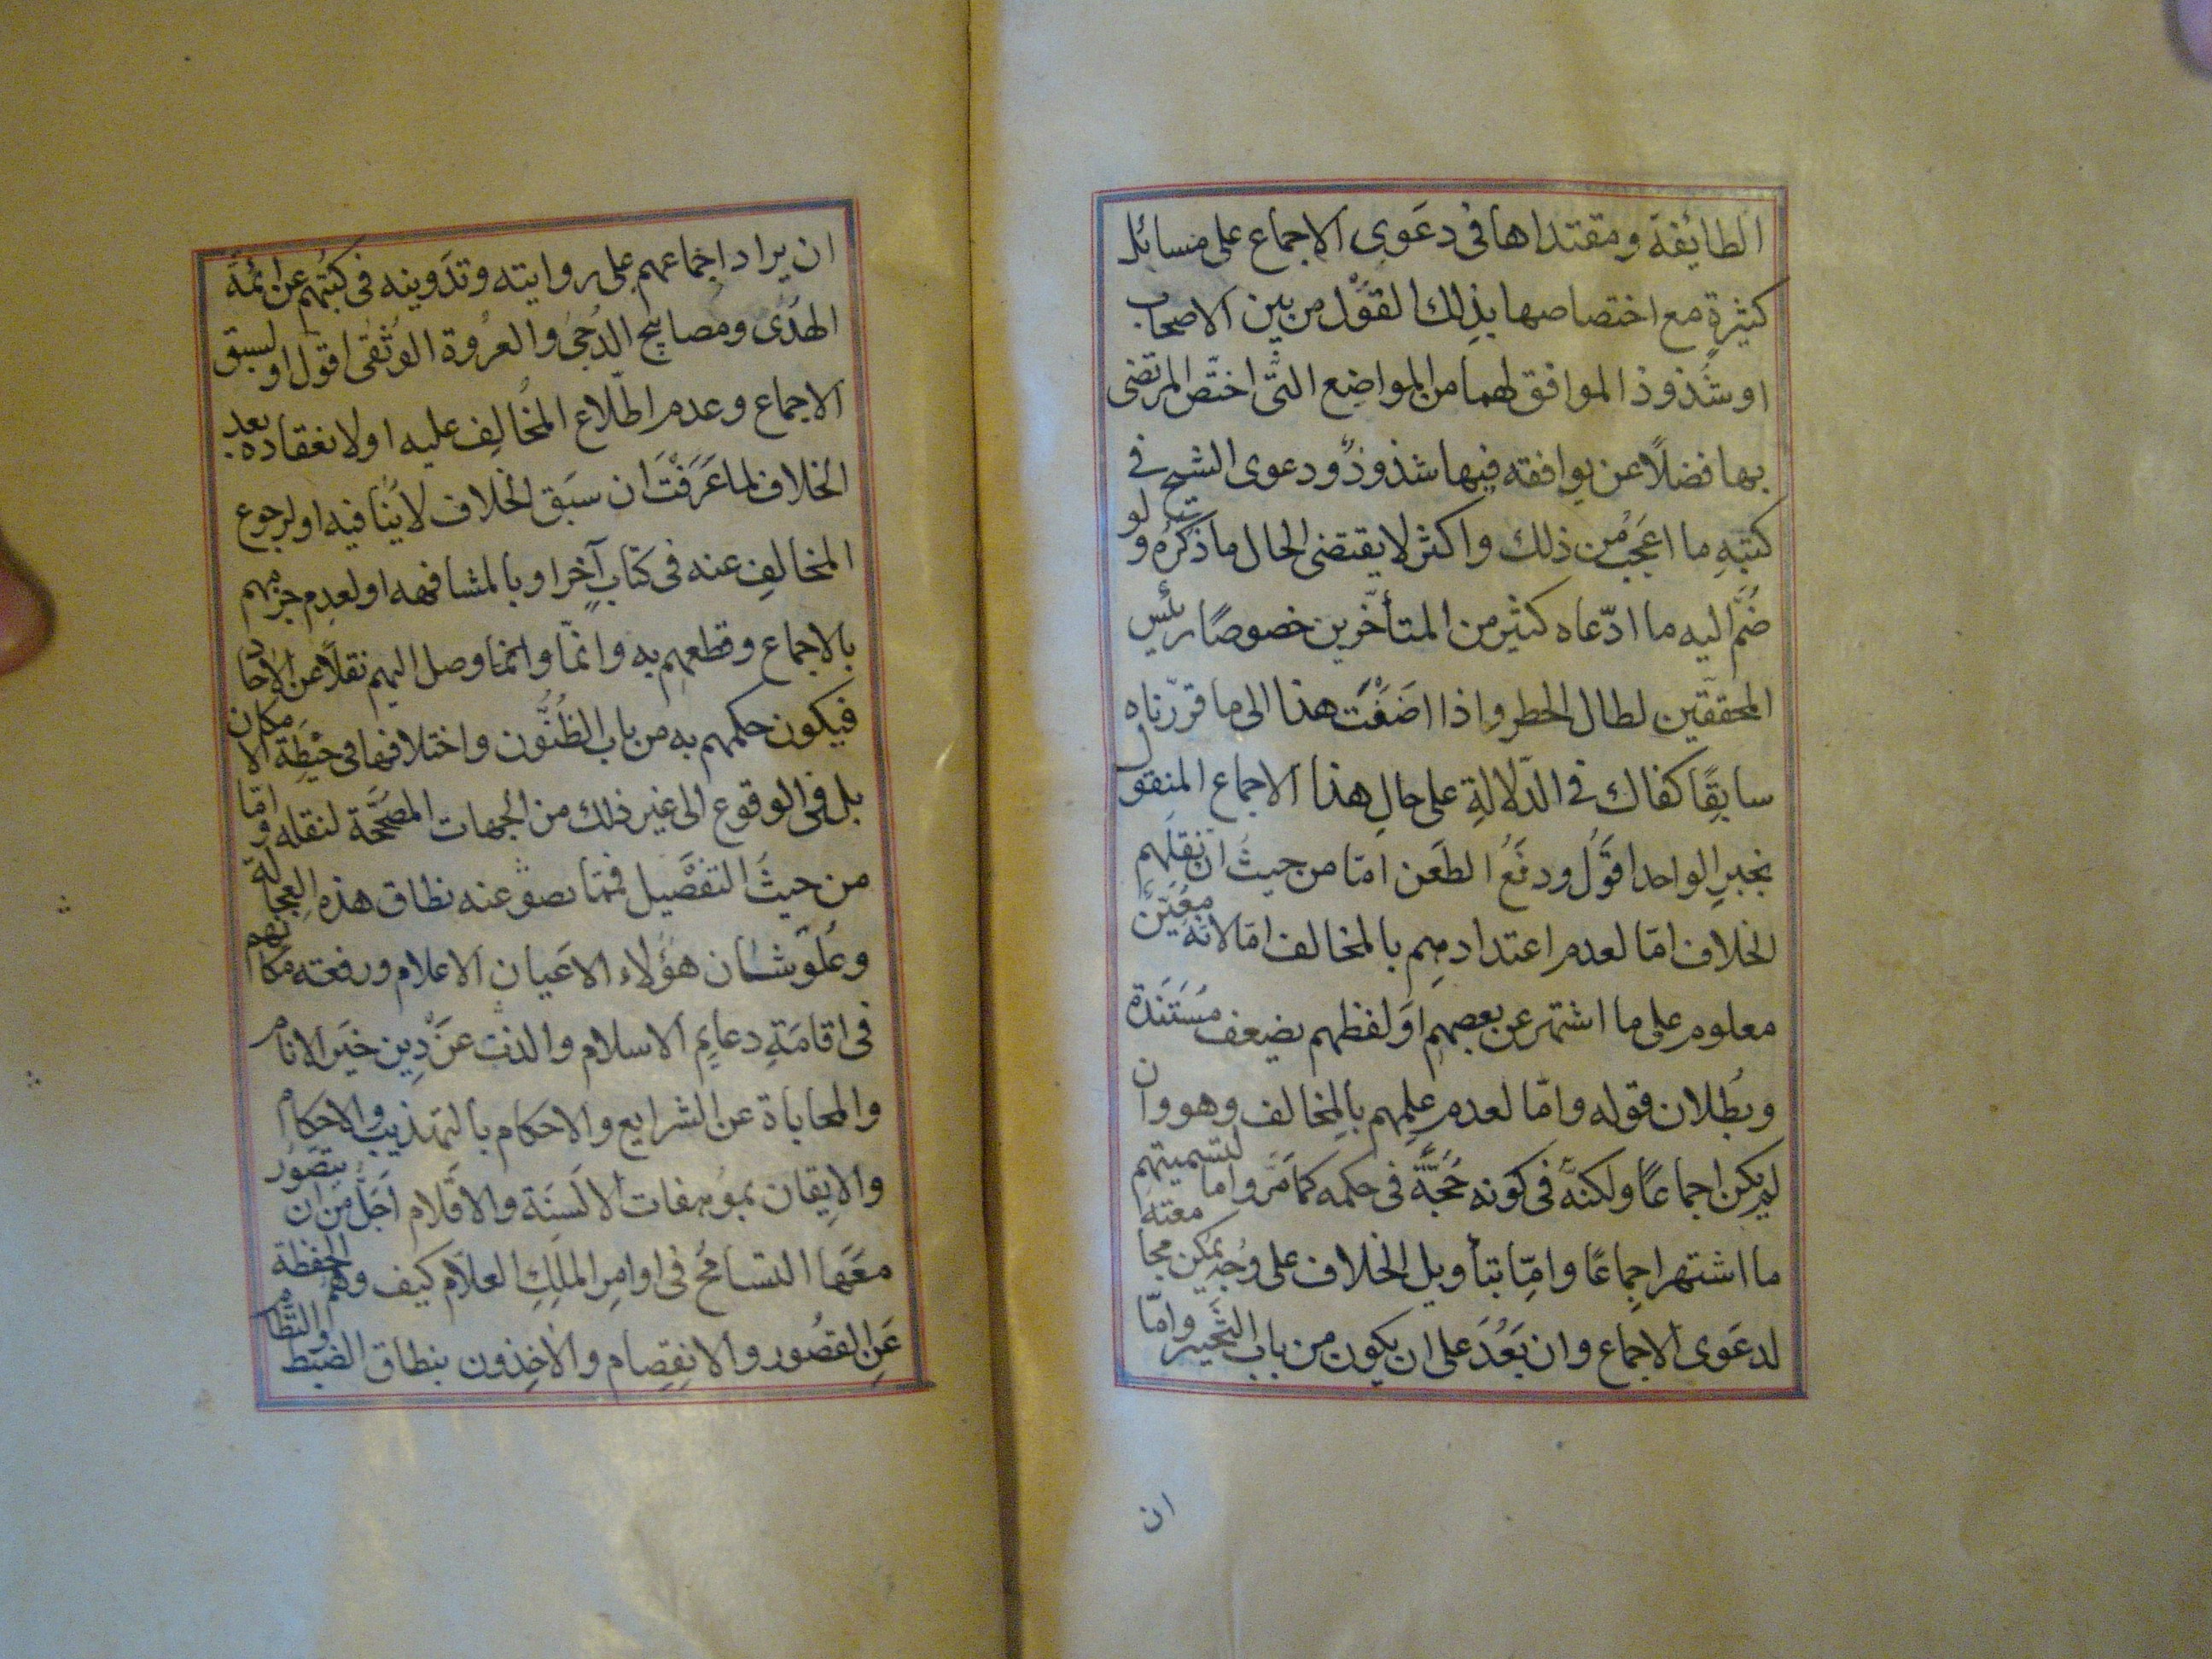 الطائفة ومقتداها فى دعوى الاجماع على مسائل
كثيرةٍ مع اختصاصها بذلك القول من بين الاصحاب
او شذوذ الموافق لهما من المواضع التّى اختصّ المرتضى
بها فضلاً عن يوافقه فيها شذوذٌ ودعوى الشيخ فى
كتبهِ ما اعجب من ذلك واكثر لا يقتضى الحال ما ذكره ولو
ضُمّ اليه ما ادّعاه كثير من المتأخّرين خصوصًا رئيس
المحققين لطال الخطر واذا اضفت هذا الى ما قرّرناه
سابقًا كفاك فى الدّلالةِ على حالِ هذا الاجماع المنقول
بخبرِ الواحد اقول ودفعُ الطعن امّا من حيث ان نقلهم
الخلاف امّا لعدم اعتدادهم بالمخالف امّا لانّه معيّن
معلوم على ما اشتهر عن بعضهم او لفظهم بضعف مستنده
وبُطلان قوله وامّا لعدم علمهم بالمخالف وهو وان
لم يكن اجماعًا ولكنّه فى كونه حُجّةً فى حكمه كما مَرّ وامّا لتسميتهم
ما اشتهر اجماعًا وامّا بتأويل الخلاف على وجهٍ يمكن مجامعته
لدعوى الاجماع وان بَعُدَ على ان يكون من باب التّخيير وامّا
ان
ان يراد اجماعهم على روايته وتدوينه فى كتبهم عن ائمّة
الهدى ومصابيح الدُجى والعروة الوُثقى اقول او لسبق
الاجماع وعدم اطّلاع المخالف عليه او لانعقاده بعد
الخلاف لما عَرَفْتَ ان سَبَق الخلاف لا ينافيه او لرجوع
المخالفِ عنه فى كتابٍ آخر او بالمشافهه او لعدم جزمهم
بالاجماع وقطعهم به وانمّا وانما وصل اليهم نقلاً عن الاحاد
فيكون حكمهم به من باب الظُنُون واختلافها فى حيْطةِ الامكان
بل فى الوقوع الى غير ذلك من الجهات المصحّحة لنقله وامّا
من حيث التفصيل فممّا عنه نطاق هذه العجالة
وعُلوّ شان هؤلاء الاعيان الاعلام ورفعته مكانهم
فى اقامَةِ دعايمِ الاسلام والذبّ عن دِين خير الانام
والمحاباة عن الشرايع والاحكام بالتهذيب والاحكام
والايقان الالسنة والاقلام اجلّ من ان يتصوّر
معها التسامُح فى اوامِر الملِكِ العلاّم كيف وهم الحفظة
عَنِ القصُور والانفِصام والاخِذون بنطاق الضبط والنّظام